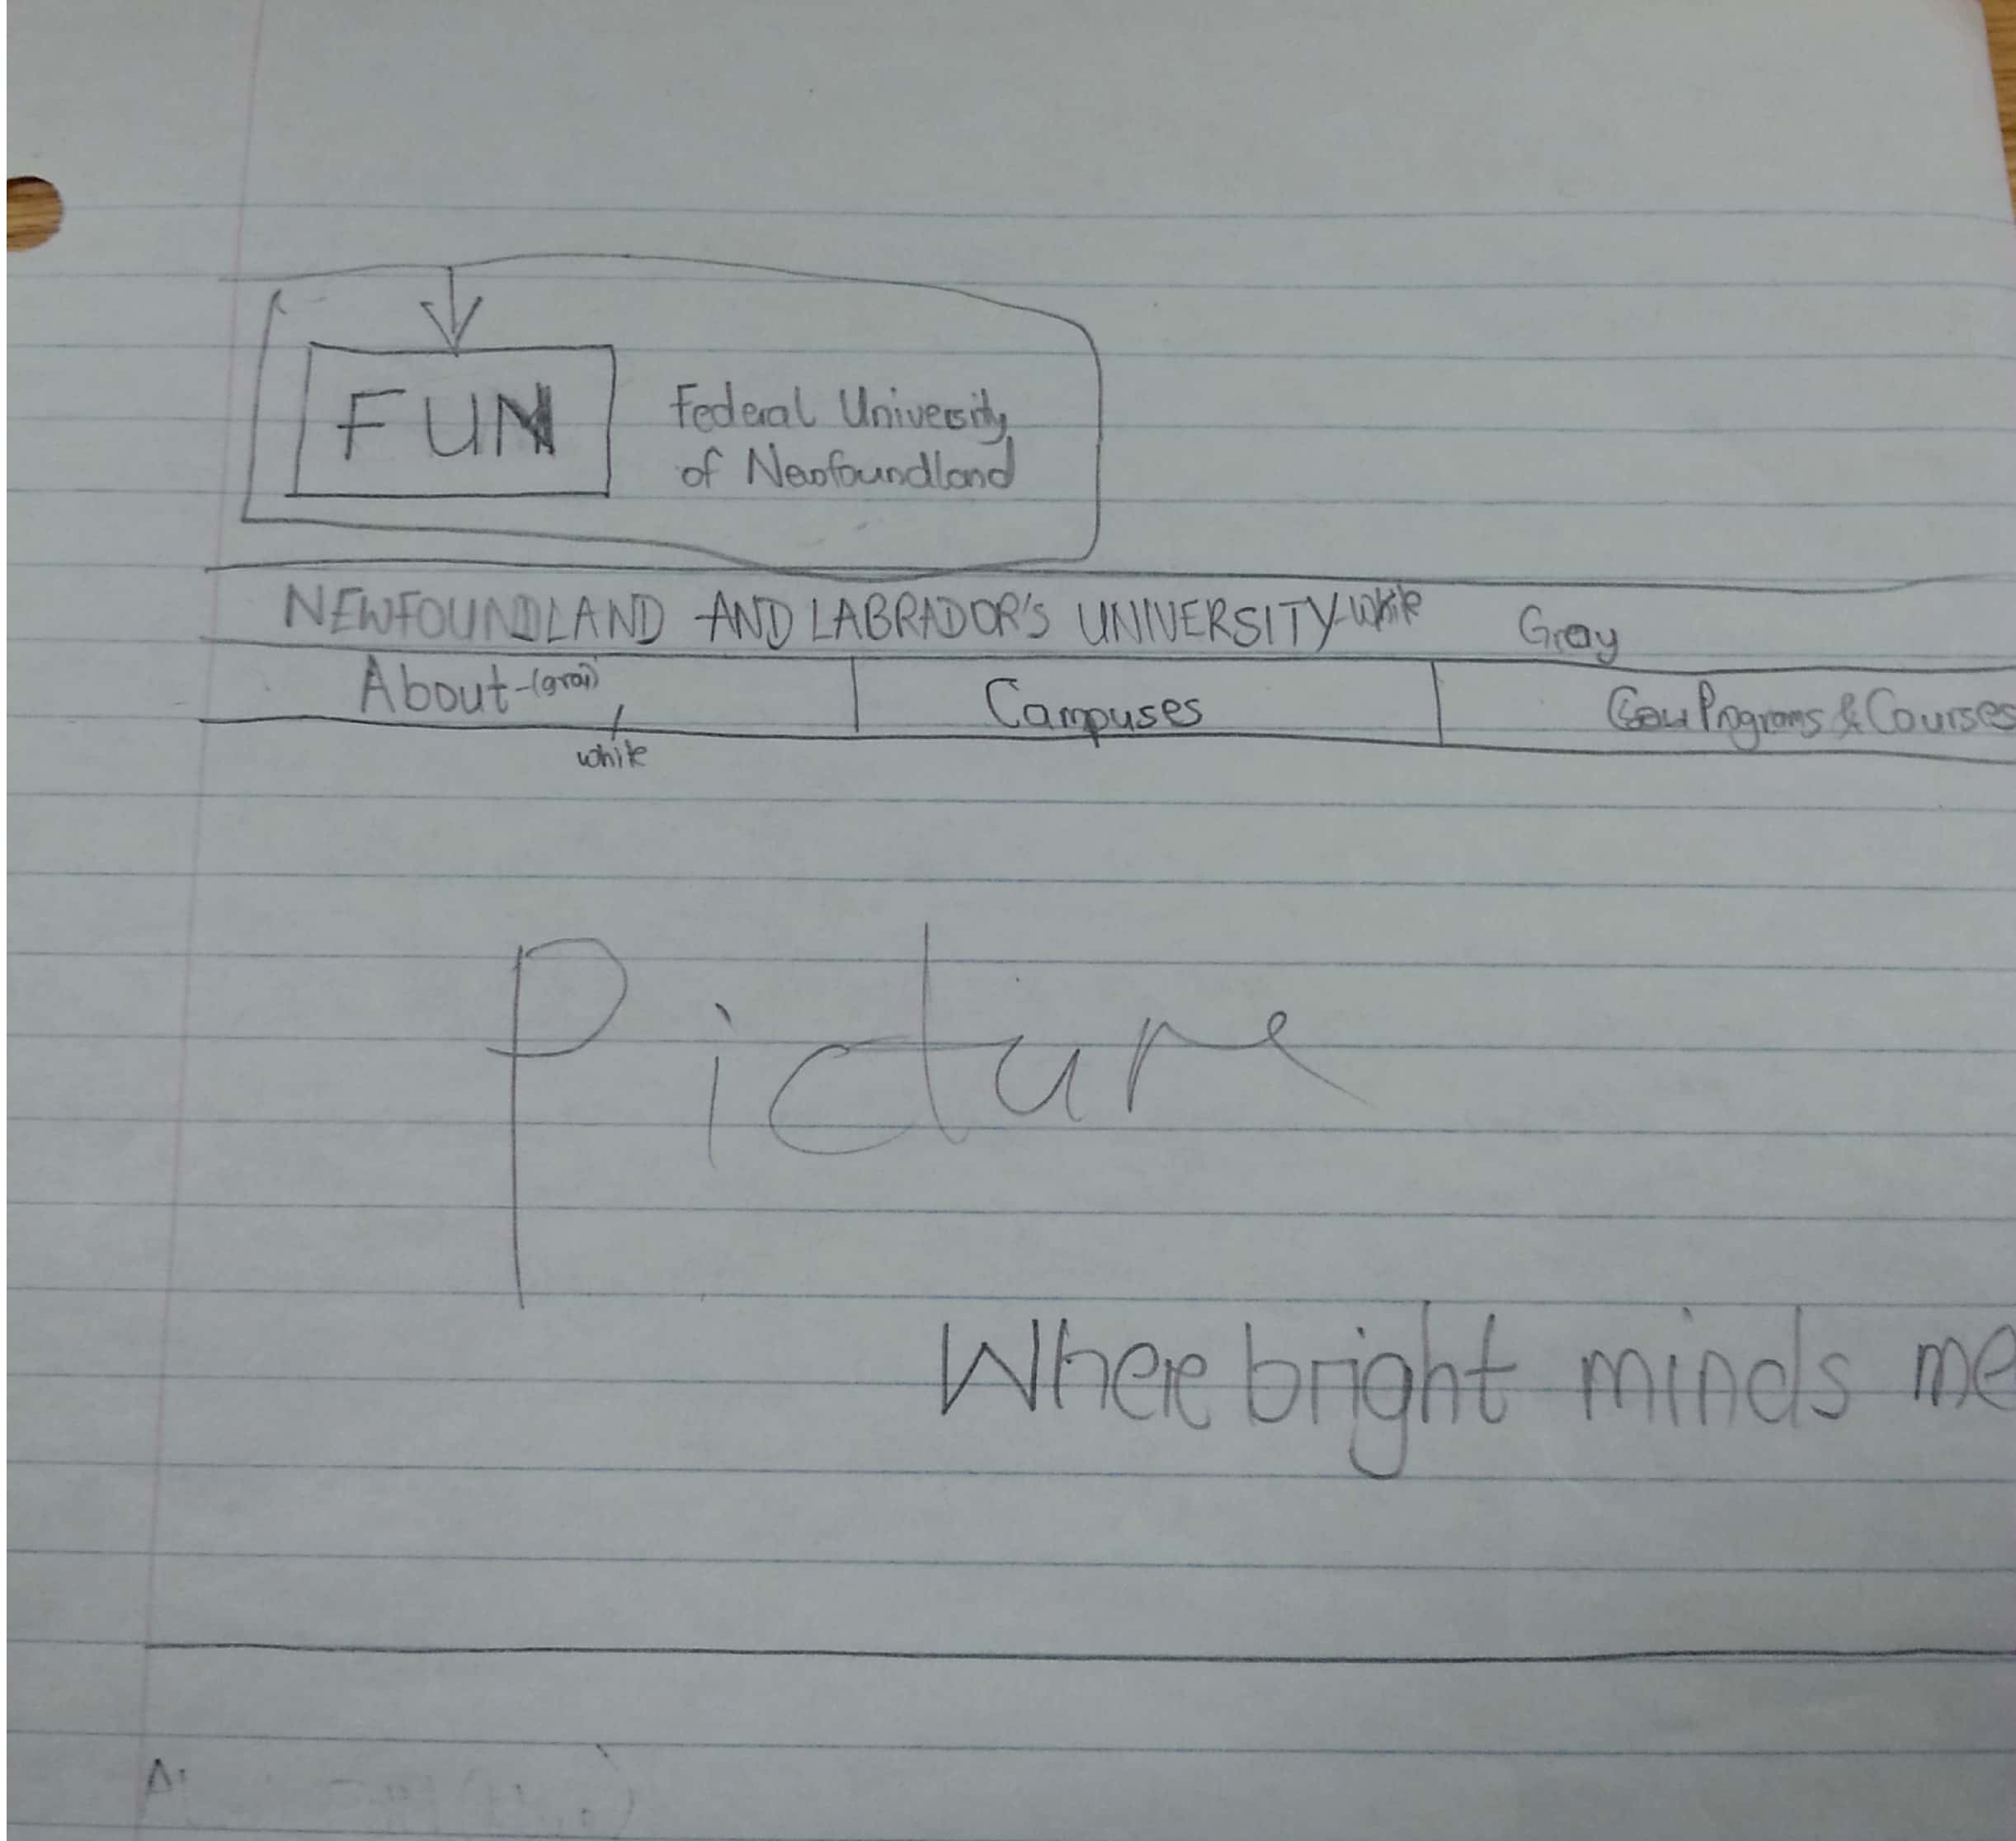 FUN
Federal University
of Newfoundland
NEWFOUNDLAND AND LABRADOR'S UNIVERSITY-white Gray
About-(gray) Campuses Programs & Courses
white
Picture
Where bright minds me